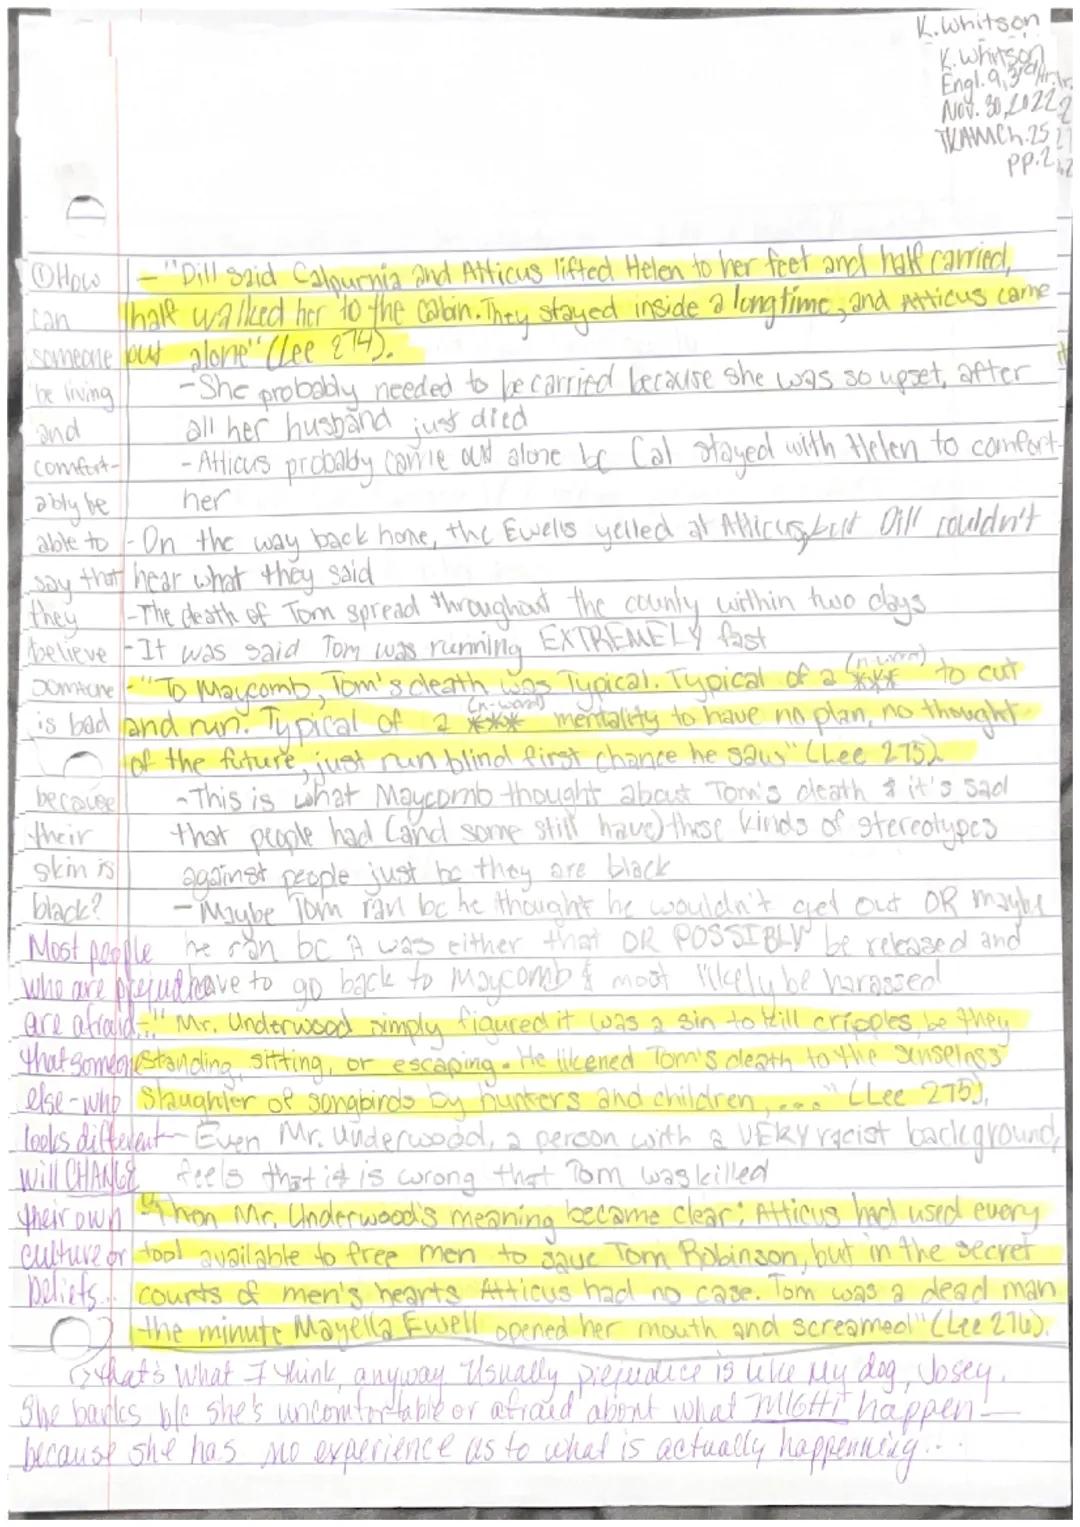 K. Whitson
K. Whitson
Engl. 9, 3rd Hr.
Nov. 30, 2022
TKAM Ch. 25
pp. 2
① How
can
someone
be living
and
comfort-
ably be
able to
say that
they
believe
someone
is bad
because
their
skin is
black?
Most people
who are prejud
are afraid
that someone
else - who
looks different
will CHANGE
their own
culture or
beliefs..
- "Dill said Calpurnia and Atticus lifted Helen to her feet and half carried,
half walked her to the cabin. They stayed inside a long time, and Atticus came
out alone" (Lee 274).
- She probably needed to be carried because she was so upset, after
all her husband just died
- Atticus probably came out alone bc Cal stayed with Helen to comfort
her
- On the way back home, the Ewells yelled at Atticus, but Dill couldn't
hear what they said
- The death of Tom spread throughout the county within two days
- It was said Tom was running EXTREMELY fast
- "To Maycomb, Tom's death was Typical. Typical of a (n-word) *** to cut
and run. Typical of a (n-word) *** mentality to have no plan, no thought
of the future, just run blind first chance he saw" (Lee 275).
- This is what Maycomb thought about Tom's death & it's sad
that people had (and some still have) these kinds of stereotypes
against people just bc they are black
- Maybe Tom ran bc he thought he wouldn't get out OR maybe
he ran bc it was either that OR POSSIBLY be released and
have to go back to Maycomb & most likely be harassed
- "Mr. Underwood simply figured it was a sin to kill cripples, be they
standing, sitting, or escaping. He likened Tom's death to the senseless
slaughter of songbirds by hunters and children, ..." (Lee 275).
- Even Mr. Underwood, a person with a VERY racist background,
feels that it is wrong that Tom was killed
- "Then Mr. Underwood's meaning became clear: Atticus had used every
tool available to free men to save Tom Robinson, but in the secret
courts of men's hearts Atticus had no case. Tom was a dead man
the minute Mayella Ewell opened her mouth and screamed" (Lee 276).
↳ that's what I think, anyway. Usually prejudice is like my dog, Josey.
She barks b/c she's uncomfortable or afraid about what MIGHT happen –
because she has no experience as to what is actually happenning...